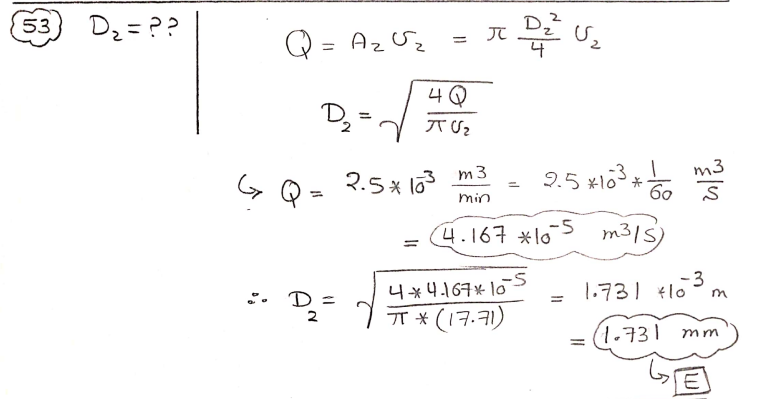 53 D₂ = ??
Q = A₂ v₂ = π D₂²/4 v₂
D₂ = √(4Q / π v₂)
↳ Q = 2.5 * 10⁻³ m3/min = 2.5 * 10⁻³ * 1/60 m3/S
= 4.167 * 10⁻⁵ m3/S
∴ D₂ = √(4 * 4.167 * 10⁻⁵ / π * (17.71)) = 1.731 * 10⁻³ m
= 1.731 mm
↳ E